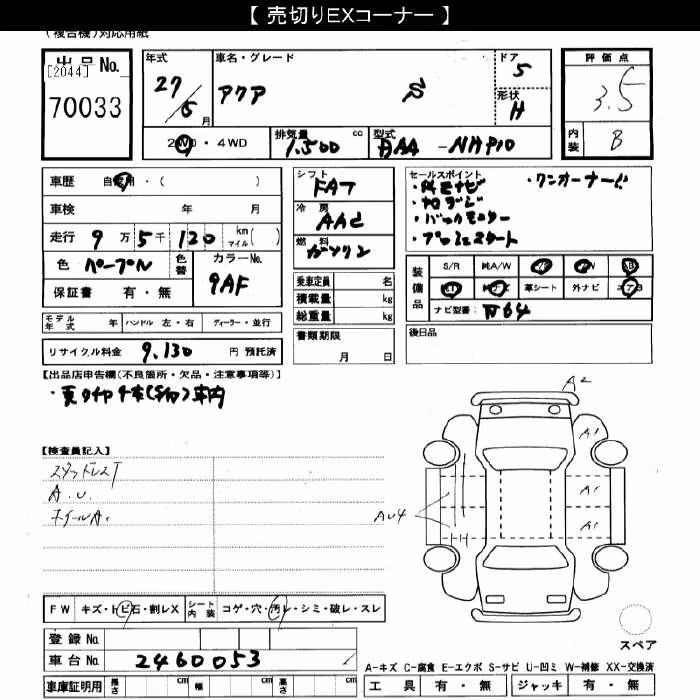 【 売切りEXコーナー 】
(複合機)対応用紙
出品 No.
[2044]
70033
年式
27/6月
車名・グレード
アクア S
ドア
5
形状
H
評価点
3.5
内装
B
2WD・4WD
排気量 cc
1.500
型式
DAA-NHP10
車歴 自家用・( )
車検 年 月
走行 9万5千120 km マイル( )
色 パープル
色替
カラーNo.
9AF
保証書 有・無
モデル年式 年 ハンドル 左・右 ディーラー・並行
リサイクル料金 9,130 円 預託済
シフト
FAT
冷房
AAC
燃料
ガソリン
乗車定員 名
積載量 kg
総重量 kg
書類期限
月 日
セールスポイント
・純正ナビ ・ワンオーナー
・バックモニター
装備品
S/R 純A/W P/S P/W AB
革シート 外ナビ エアB
ナビ型番:
後日品
【出品店申告欄(不良箇所・欠品・注意事項等)】
・夏タイヤ4本(S/W)車内
【検査員記入】
スタッドレス
A.U.
ホイールA.
A2
A1
A1
A1
AU4
FW キズ・トビ石・割レX
シート内装 コゲ・穴・汚レ・シミ・破レ・スレ
登録 No.
車台 No. 2460053
車庫証明用 長さ cm 幅 cm 高さ cm
スペア
A-キズ C-腐食 E-エクボ S-サビ U-凹ミ W-補修 XX-交換済
工具 有・無 ジャッキ 有・無